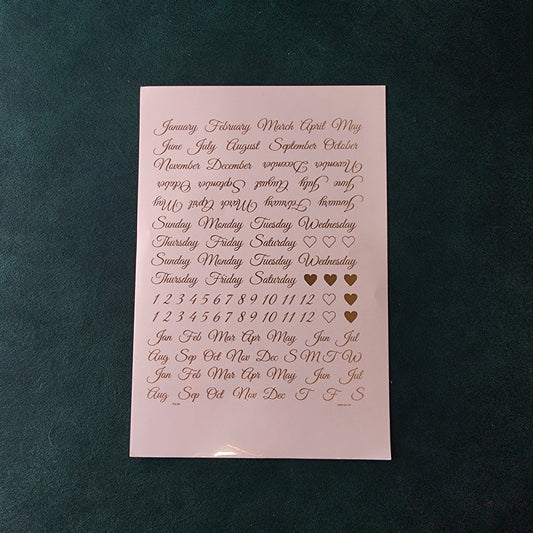 January February March April May
June July August September October
November December November December
June July August September October
January February March April May
Sunday Monday Tuesday Wednesday
Thursday Friday Saturday
Sunday Monday Tuesday Wednesday
Thursday Friday Saturday
1 2 3 4 5 6 7 8 9 10 11 12
1 2 3 4 5 6 7 8 9 10 11 12
Jan Feb Mar Apr May Jun Jul
Aug Sep Oct Nov Dec S M T W
Jan Feb Mar Apr May Jun Jul
Aug Sep Oct Nov Dec T F S